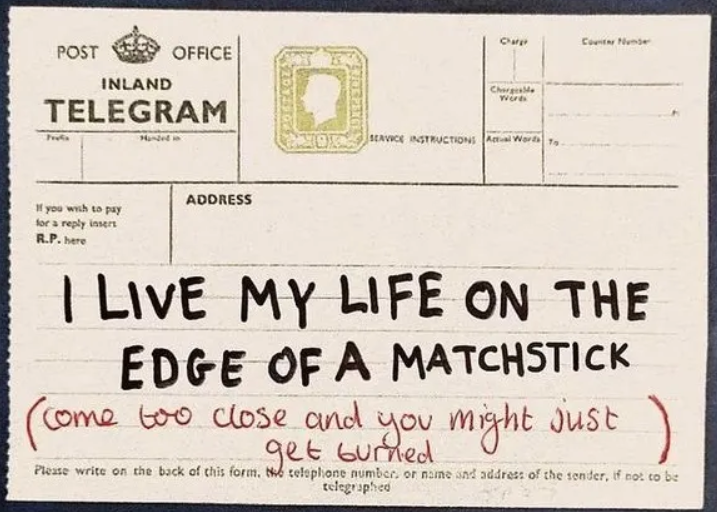 POST OFFICE
INLAND
TELEGRAM
Prefix Handed in
SERVICE INSTRUCTIONS
Charge
Counter Number
Chargeable
Words
Actual Words
To
If you wish to pay
for a reply insert
R.P. here
ADDRESS
I LIVE MY LIFE ON THE
EDGE OF A MATCHSTICK
(come too close and you might just
get burned)
Please write on the back of this form, the telephone number, or name and address of the sender, if not to be
telegraphed